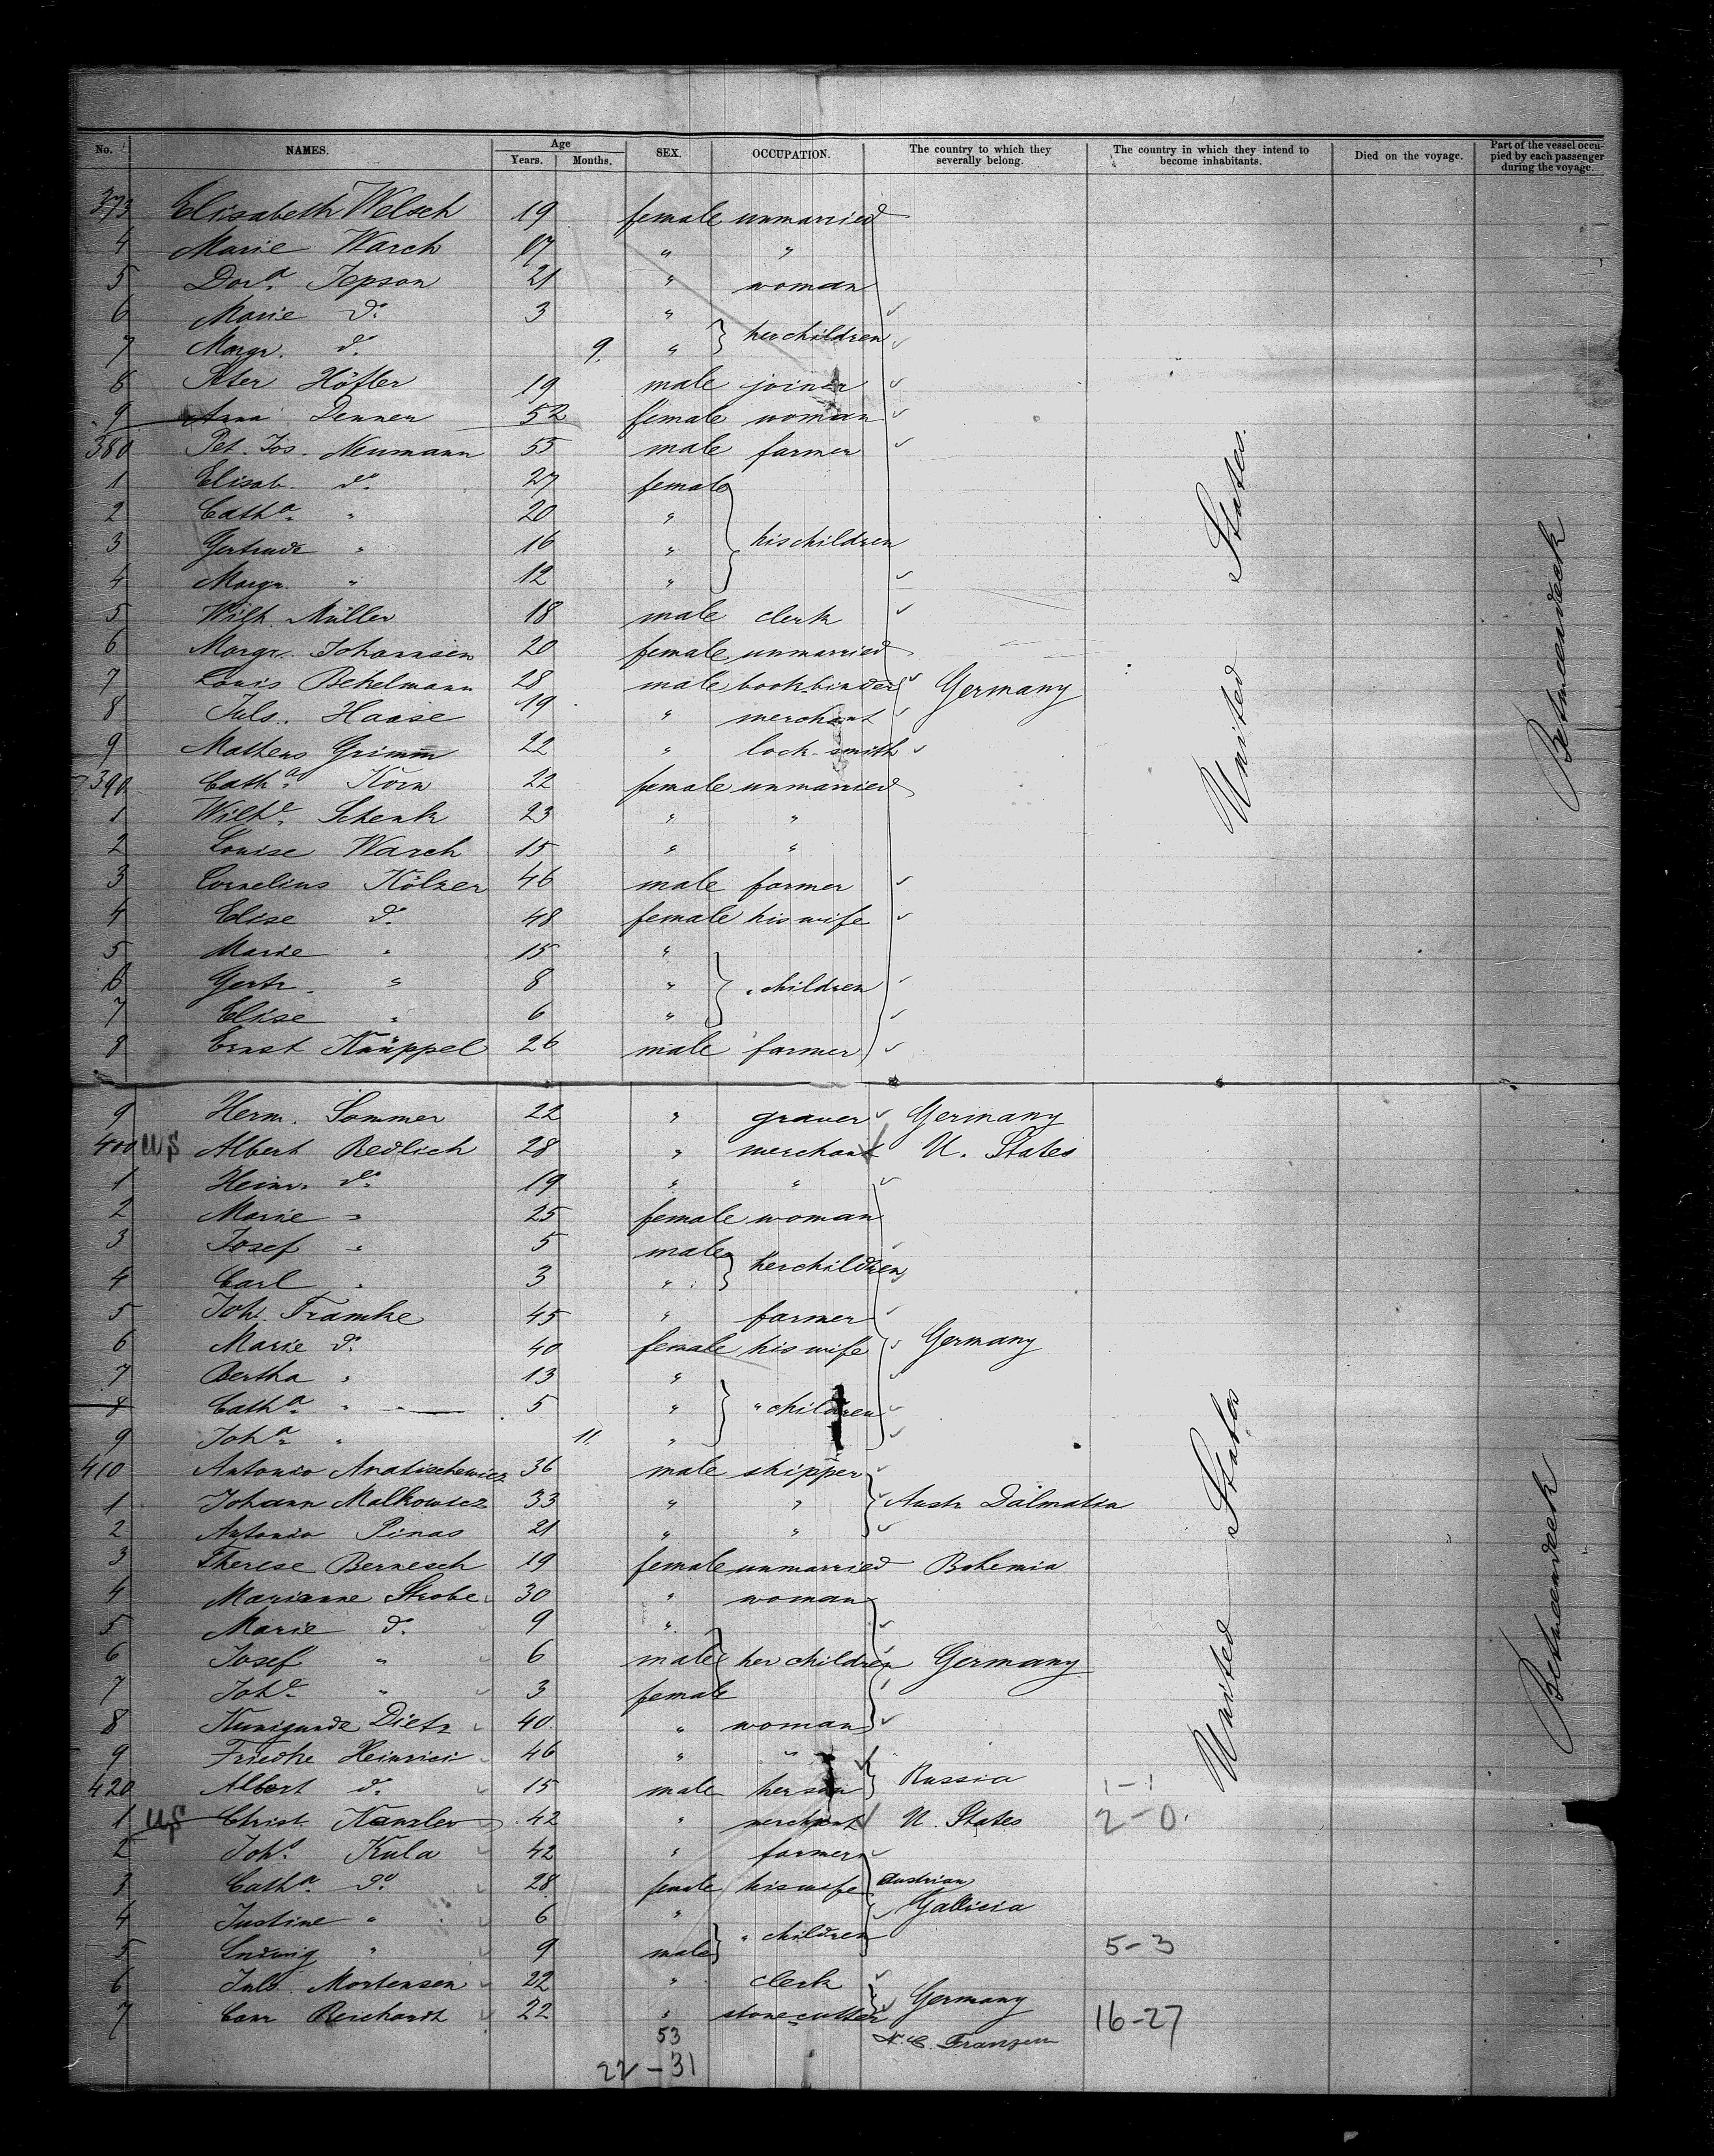 No. NAMES. Age Years. Months. SEX. OCCUPATION. The country to which they severally belong. The country in which they intend to become inhabitants. Died on the voyage. Part of the vessel occupied by each passenger during the voyage.
373 Elisabeth Welsch 19 female unmarried
4 Marie Warch 17 " "
5 Dora. Jepson 21 " woman
6 Marie do. 3 "
7 Margr. do. 9. " her children
8 Peter Höfler 19 male joiner
9 Anna Denner 52 female woman
380 Pet. Jos. Neumann 55 male farmer
1 Elisab. do. 27 female
2 Catha. " 20 "
3 Gertrude " 16 " his children
4 Margr. " 12 "
5 Wilh. Müller 18 male clerk
6 Margr. Johannsen 20 female unmarried
7 Louis Bekelmann 28 male bookbinder Germany
8 Juls. Haase 19 " merchant
9 Matheus Grimm 22 " lock-smith
390 Catha. Korn 22 female unmarried
1 Wilhe. Schenk 23 " "
2 Louise Warch 15 " "
3 Cornelius Kölzer 46 male farmer
4 Elise do. 48 female his wife
5 Marie " 15 "
6 Gertr. " 8 " " children
7 Elise " 6 "
8 Ernst Knüppel 26 male farmer
United States.
Betweendeck
9 Herm. Sommer 22 " graver Germany
400 US Albert Redlich 28 " merchant U. States
1 Heinr. do. 19 " "
2 Marie " 25 female woman
3 Josef " 5 male
4 Carl " 3 " her children
5 Joh. Framke 45 " farmer
6 Marie do. 40 female his wife Germany
7 Bertha " 13 "
8 Catha. " 5 " " children
9 Joha. " 11. "
410 Antonio Anatischewicz 36 male skipper
1 Johann Malkowicz 33 " " Austr. Dalmatia
2 Antonio Pinas 21 " "
3 Therese Bernesch 19 female unmarried Bohemia
4 Marianne Strobe 30 " woman
5 Marie do. 9 "
6 Josef " 6 male her children Germany
7 Johe. " 3 female
8 Kunigunde Dietz 40 " woman
9 Friedke Heinrici 46 " "
420 Albert do. 15 male her son Russia 1-1
1 US Christ. Kanzler 42 " merchant U. States 2-0
2 Johs. Kula 42 " farmer
3 Catha. do. 28 female his wife Austrian
4 Justine " 6 " Gallicia
5 Ludwig " 9 male " children 5-3
6 Juls. Mortensen 22 " clerk
7 Conr Reichardt 22 " stone-cutter Germany 16-27
United States
Betweendeck
53 N. C. Franzen
22-31